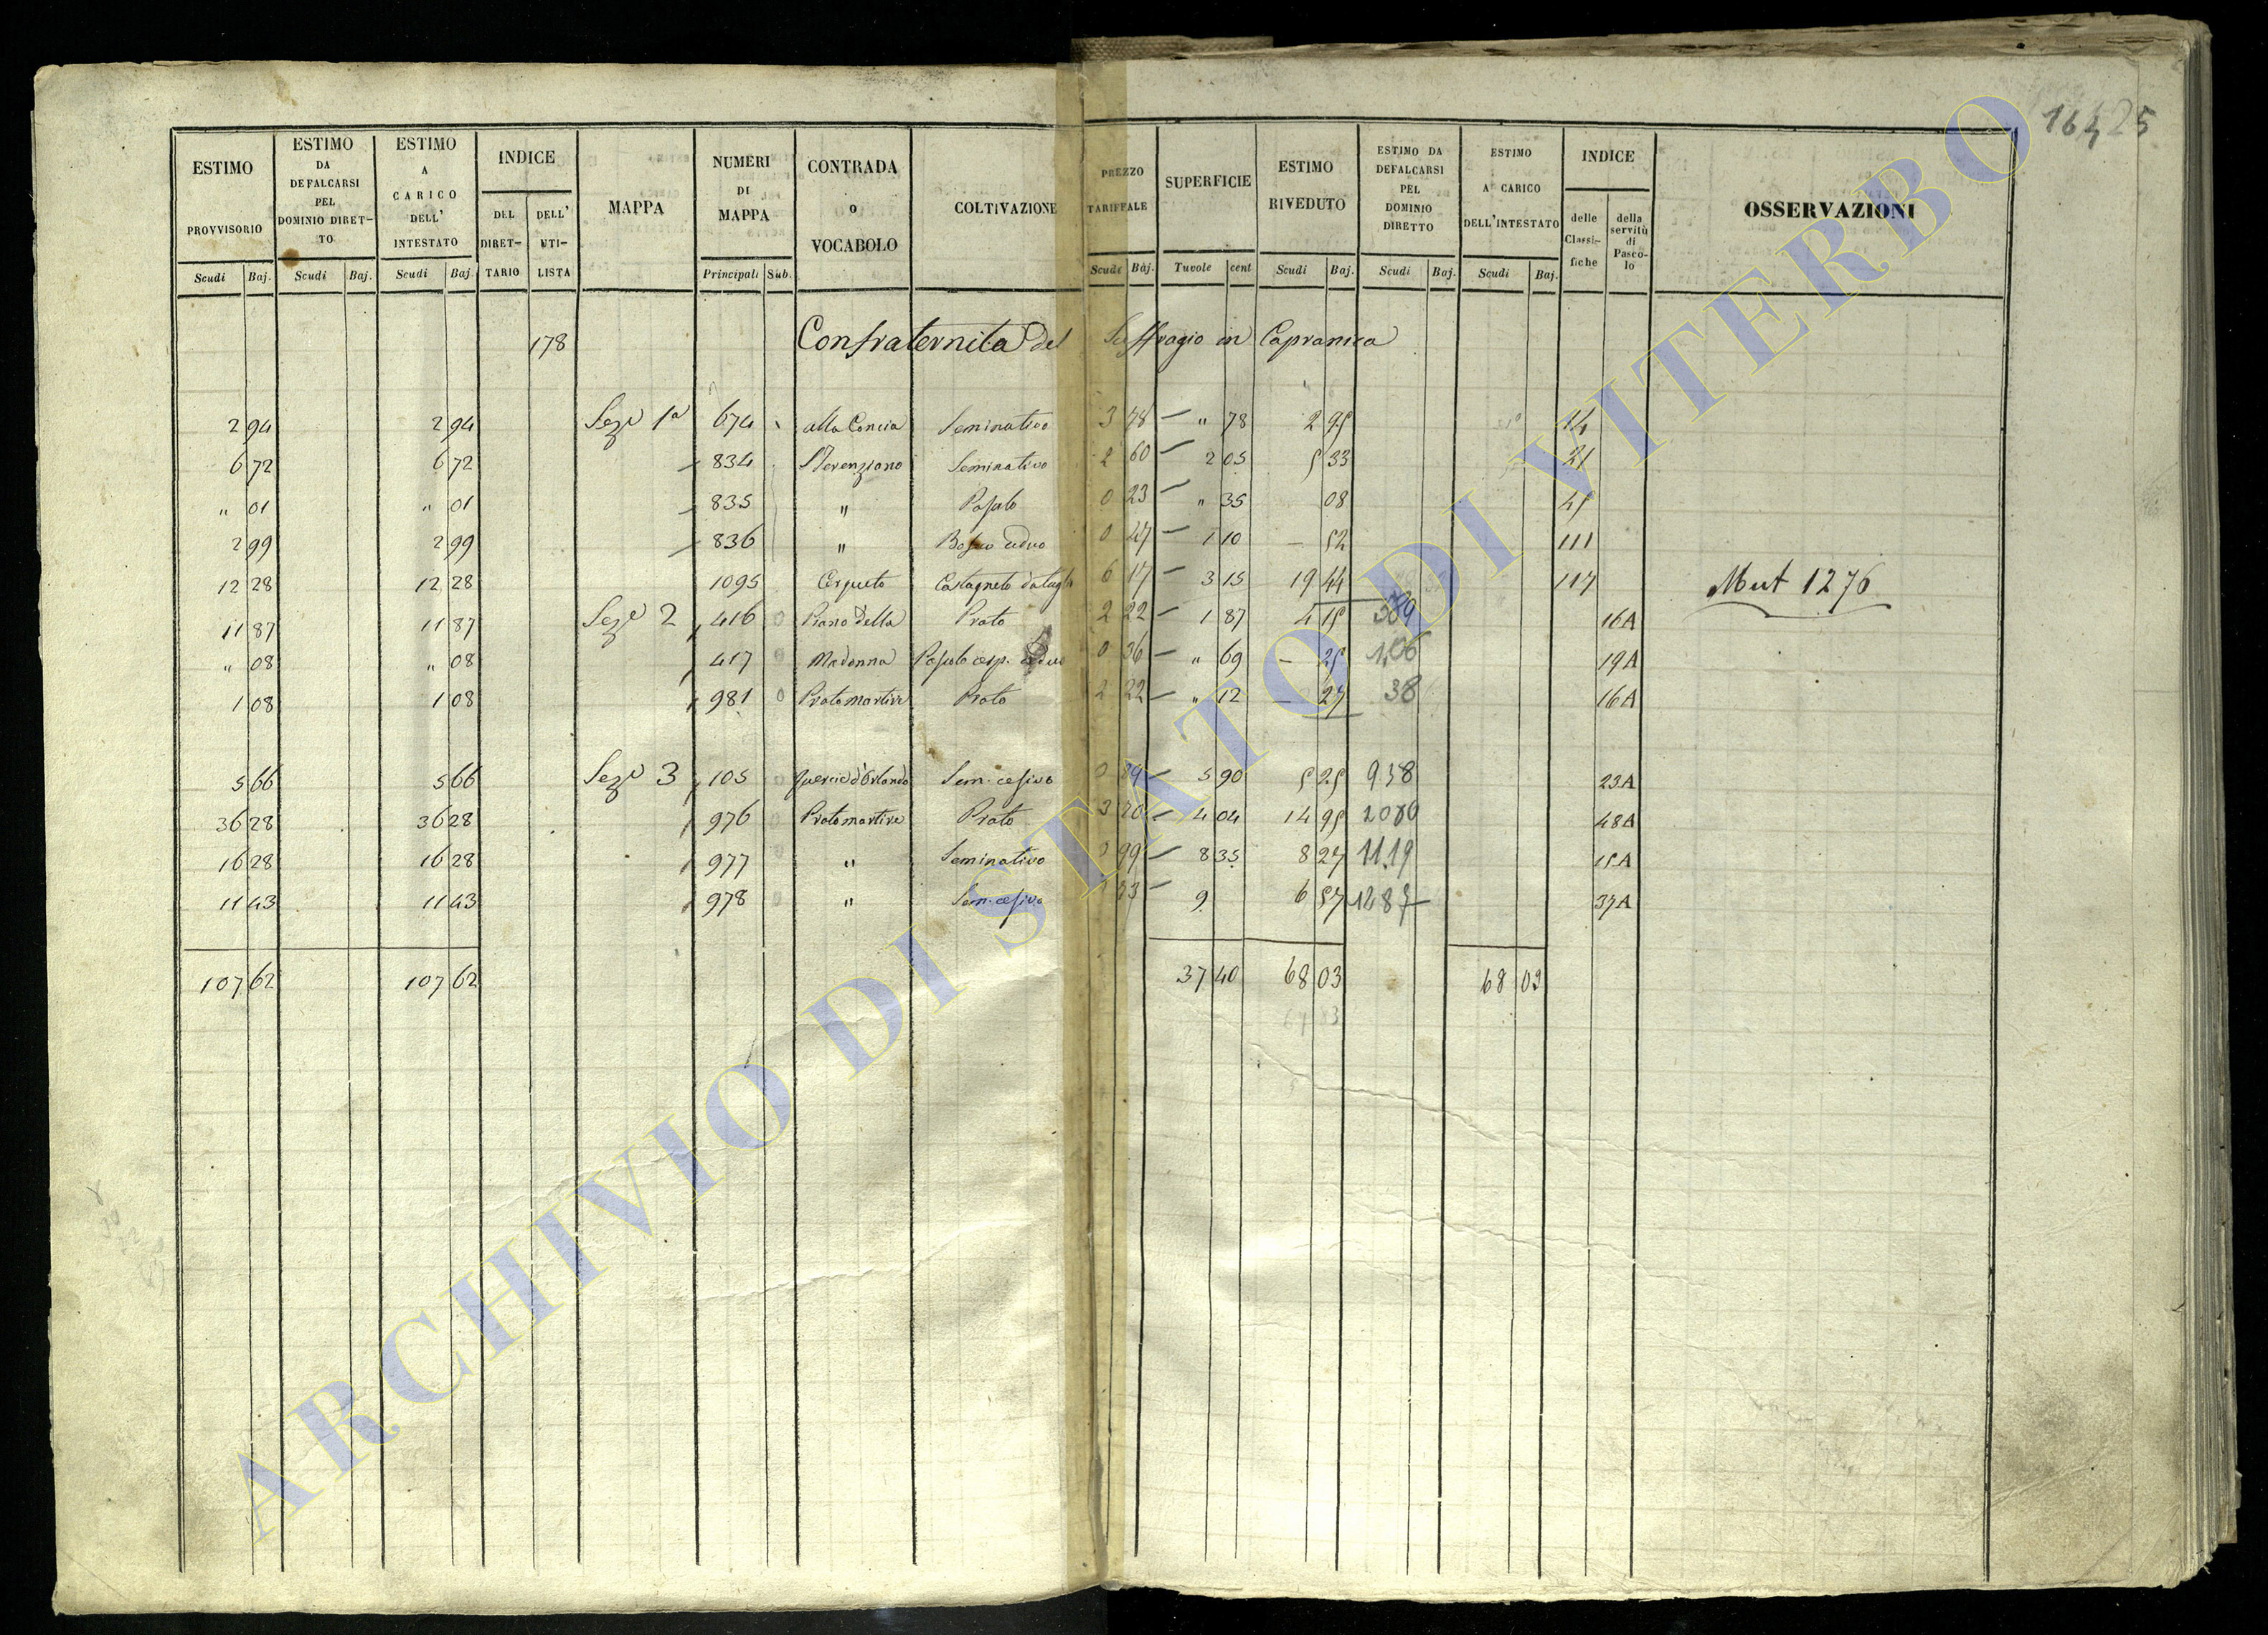 16425
ESTIMO PROVVISORIO Scudi Baj.
ESTIMO DA DEFALCARSI PEL DOMINIO DIRETTO Scudi Baj.
ESTIMO A CARICO DELL' INTESTATO Scudi Baj.
INDICE DEL DIRETTARIO DELL' UTILISTA
MAPPA
NUMERI DI MAPPA Principali Sub.
CONTRADA o VOCABOLO
COLTIVAZIONE
PREZZO TARIFFALE Scudi Baj.
SUPERFICIE Tavole cent
ESTIMO RIVEDUTO Scudi Baj.
ESTIMO DA DEFALCARSI PEL DOMINIO DIRETTO Scudi Baj.
ESTIMO A CARICO DELL'INTESTATO Scudi Baj.
INDICE delle Classifiche della servitù di Pascolo
OSSERVAZIONI
178 Confraternita del Suffragio in Capranica
2 94 2 94 Seze 1a 674 alla Concia Seminativo 3 78 — " 78 2 95 14
6 72 6 72 834 S Terenziano Seminativo 2 60 — 2 05 5 33 21
" 01 " 01 835 " Pascolo 0 23 — " 35 08 41
2 99 2 99 836 " Bosco ceduo 0 47 — 1 10 — 52 111
12 28 12 28 1095 Cerqueto Castagneto da taglio 6 17 — 3 15 19 44 117 Mut 1276
11 87 11 87 Seze 2 416 0 Piano della Prato 2 22 — 1 87 4 15 589 16A
" 08 " 08 417 0 Madonna Pascolo cesp. 0 36 — " 69 — 25 1,06 19A
1 08 1 08 981 0 Protomartire Prato 2 22 — " 12 — 27 38 16A
5 66 5 66 Seze 3 105 0 Quercie d'Orlando Sem. cesivo 0 89 — 5 90 5 25 938 23A
36 28 36 28 976 Protomartire Prato 3 70 — 4 04 14 95 2080 48A
16 28 16 28 977 " Seminativo 0 99 — 8 35 8 27 11.19 15A
11 43 11 43 978 " Sem. cesivo 73 — 9 6 57 1287 37A
107 62 107 62 37 40 68 03 68 03
ARCHIVIO DI STATO DI VITERBO